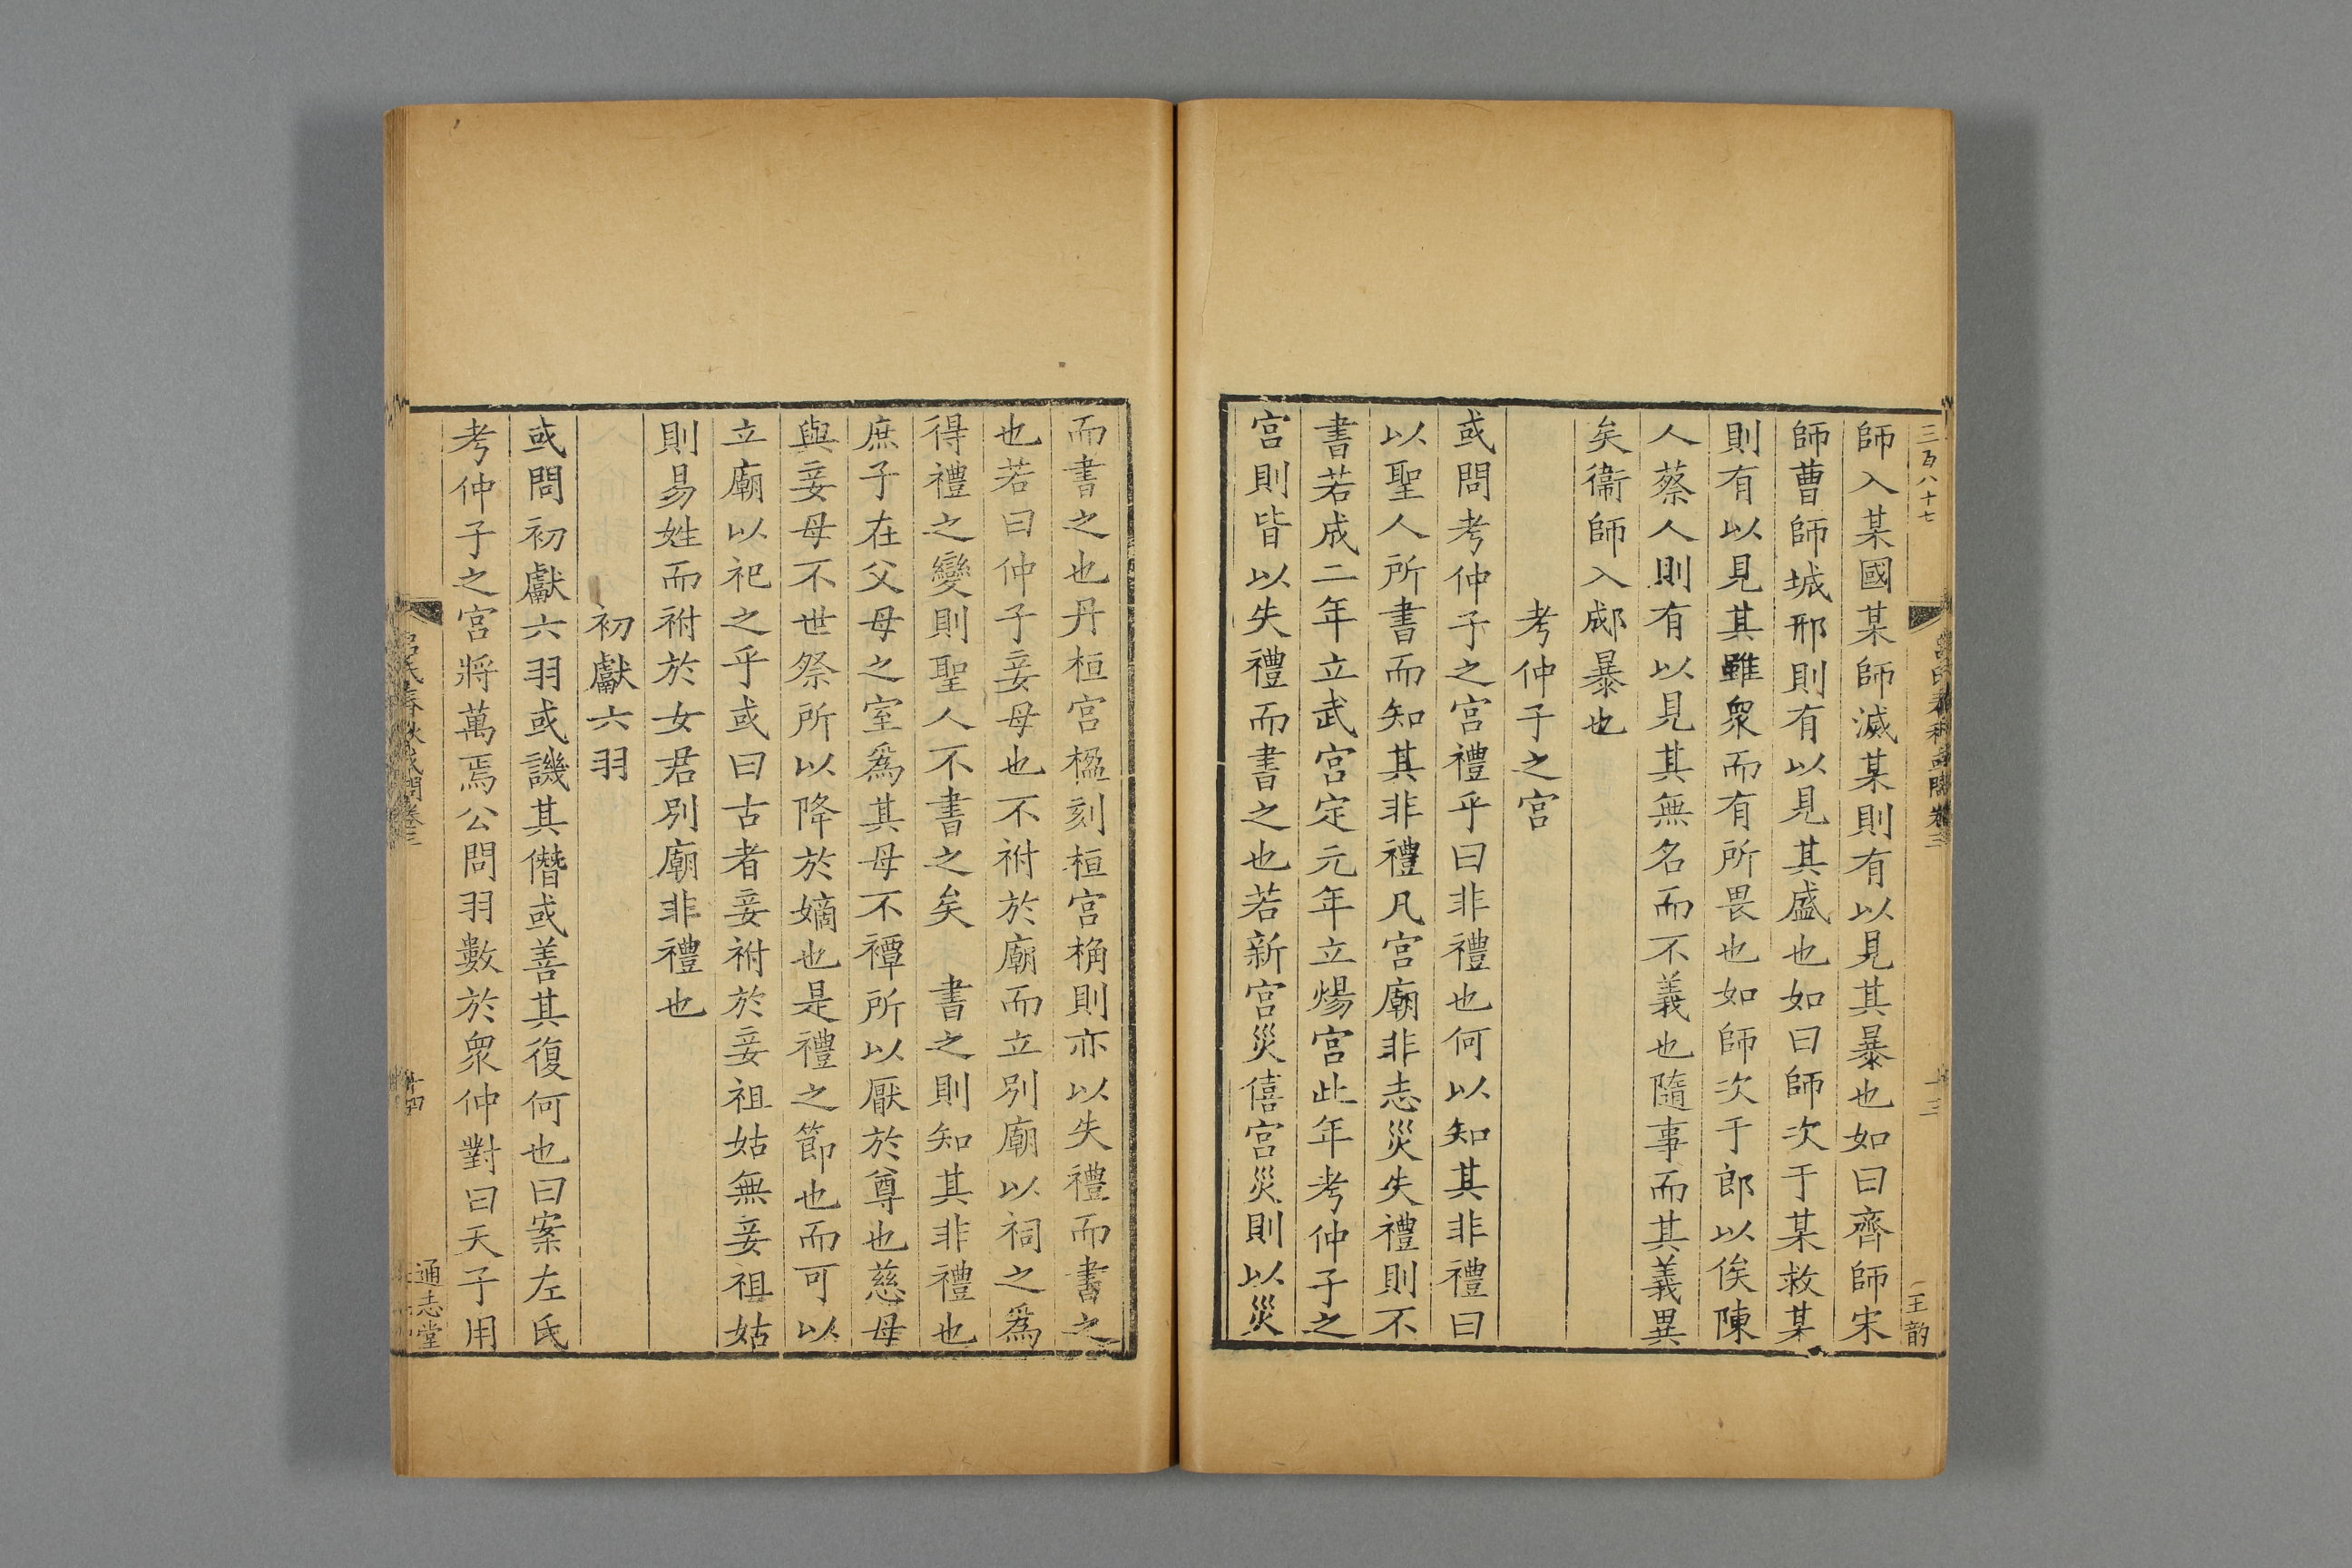 三百八十七
王韵
師入某國某師滅某則有以見其暴也如曰齊師宋
師曹師城邢則有以見其盛也如曰師次于某救某
則有以見其雖衆而有所畏也如師次于郎以俟陳
人蔡人則有以見其無名而不義也隨事而其義異
矣衞師入郕暴也
考仲子之宮
或問考仲子之宮禮乎曰非禮也何以知其非禮曰
以聖人所書而知其非禮凡宮廟非志災失禮則不
書若成二年立武宮定元年立煬宮此年考仲子之
宮則皆以失禮而書之也若新宮災僖宮災則以災
而書之也丹桓宮楹刻桓宮桷則亦以失禮而書之
也若曰仲子妾母也不祔於廟而立別廟以祠之爲
得禮之變則聖人不書之矣 書之則知其非禮也
庶子在父母之室爲其母不禫所以厭於尊也慈母
與妾母不世祭所以降於嫡也是禮之節也而可以
立廟以祀之乎或曰古者妾祔於妾祖姑無妾祖姑
則易姓而祔於女君別廟非禮也
初獻六羽
或問初獻六羽或譏其僭或善其復何也曰案左氏
考仲子之宮將萬焉公問羽數於衆仲對曰天子用
呂氏春秋或問卷三
十四
通志堂